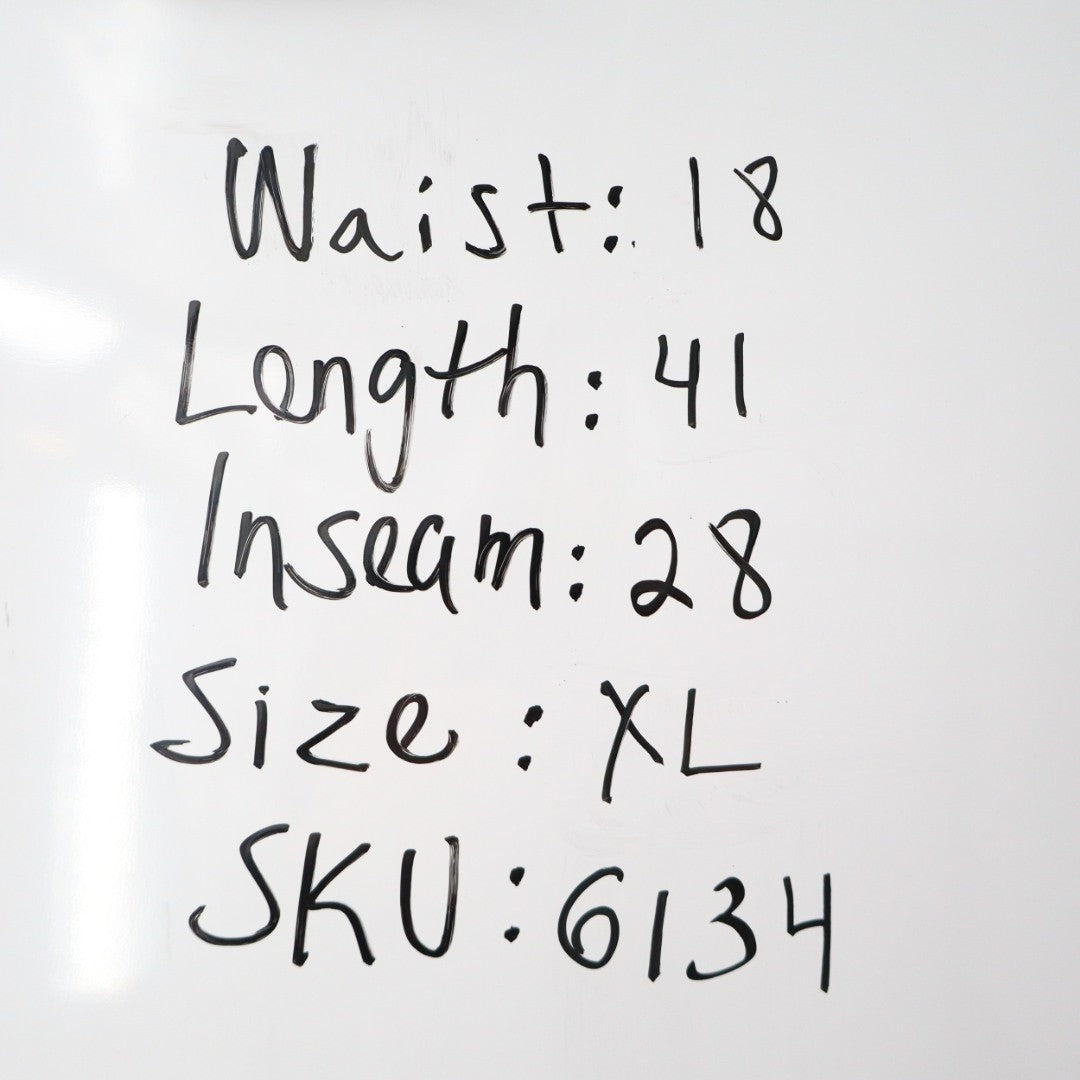 Waist: 18
Length: 41
Inseam: 28
Size: XL
SKU: 6134